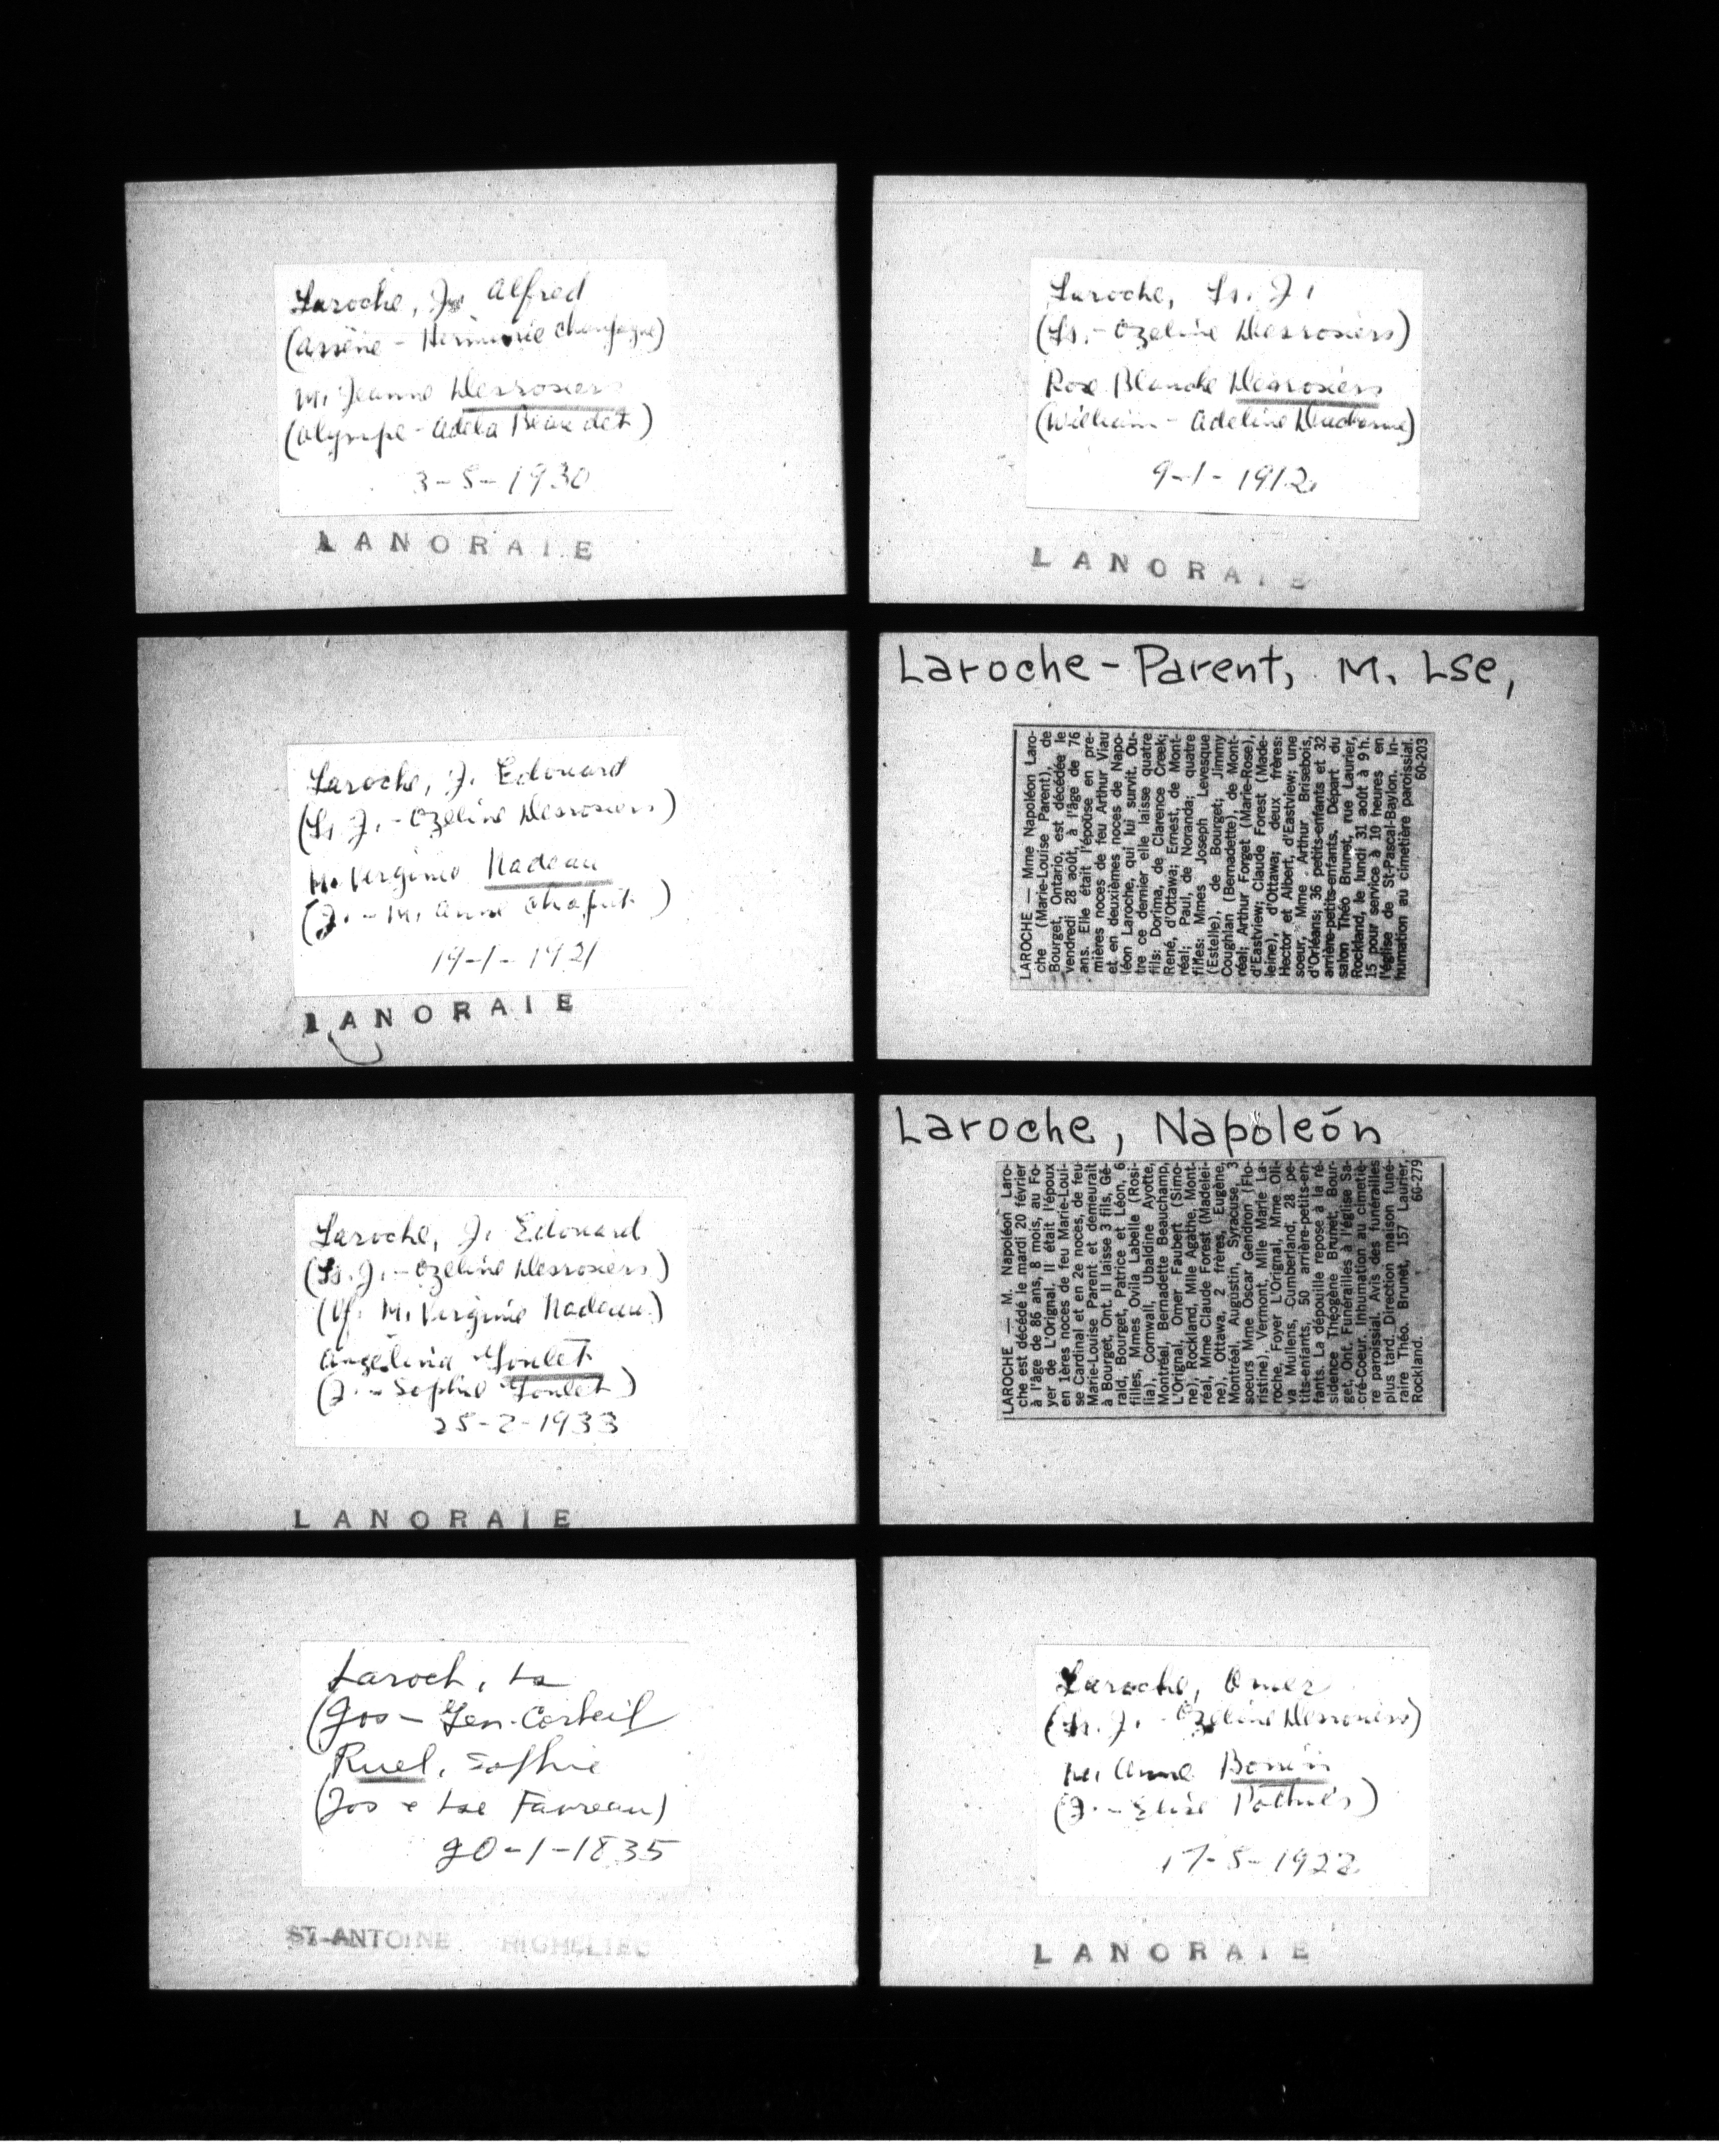 Laroche, Js Alfred
(Arsène - Herminie Champagne)
M. Jeanne Desrosiers
(Olympe - Adéla Beaudet)
3-5-1930
LANORAIE
Laroche, Ls. J.
(Ls. - Ozeline Desrosiers)
Rose Blanche Desrosiers
(William - Adeline)
9-1-1912
LANORAIE
Laroche, J. Edouard
(Ls. J. - Ozeline Desrosiers)
M. Verginie Nadeau
(J. - M. Anne Chaput)
19-1-1921
LANORAIE
Laroche-Parent, M. Lse,
LAROCHE — Mme Napoléon Laro-
che (Marie-Louise Parent), de
Bourget, Ontario, est décédée le
vendredi 28 août, à l'âge de 76
ans. Elle était l'épouse en pre-
mières noces de feu Arthur Viau
et en deuxièmes noces de Napo-
léon Laroche, qui lui survit. Ou-
tre ce dernier elle laisse quatre
fils: Dorima, de Clarence Creek;
René, d'Ottawa; Ernest, de Mont-
réal; Paul, de Noranda; quatre
filles: Mmes Joseph Levesque
(Estelle), de Bourget; Jimmy
Coughlan (Bernadette), de Mont-
réal; Arthur Forget (Marie-Rose),
d'Eastview; Claude Forest (Made-
leine), d'Ottawa; deux frères:
Hector et Albert, d'Eastview; une
soeur, Mme Arthur Brisebois,
d'Orléans; 36 petits-enfants et 32
arrière-petits-enfants. Départ du
salon Théo Brunet, rue Laurier,
Rockland, le lundi 31 août à 9 h.
15 pour service à 10 heures en
l'église de St-Pascal-Baylon. In-
humation au cimetière paroissial.
60-203
Laroche, J. Edouard
(Ls. J. - Ozeline Desrosiers)
(Vf. M. Verginie Nadeau)
Angélina Goulet
(J. - Sophie Goulet)
25-2-1933
LANORAIE
Laroche, Napoleón
LAROCHE — M. Napoléon Laro-
che est décédé le mardi 20 février
à l'âge de 86 ans, 8 mois, au Fo-
yer de L'Orignal. Il était l'époux
en 1ères noces de feu Marie-Loui-
se Cardinal et en 2e noces, de feu
Marie-Louise Parent et demeurait
à Bourget, Ont. Il laisse 3 fils, Gé-
rald, Bourget, Patrice et Léon, 6
filles, Mmes Ovila Labelle (Rosi-
lia), Cornwall, Ubaldine Ayotte,
Montréal, Bernadette Beauchamp,
L'Orignal, Omer Faubert (Simo-
ne), Rockland, Mlle Agathe, Mont-
réal, Mme Claude Forest (Madelei-
ne), Ottawa, 2 frères, Eugène,
Montréal, Augustin, Syracuse, 3
soeurs Mme Oscar Gendron (Flo-
ristine), Vermont, Mlle Marie La-
roche, Foyer L'Orignal, Mme Oli-
va Mullens, Cumberland, 28 pe-
tits-enfants, 50 arrière-petits-en-
fants. La dépouille repose à la ré-
sidence Théogène Brunet, Bour-
get, Ont. Funérailles à l'église Sa-
cré-Coeur. Inhumation au cimetiè-
re paroissial. Avis des funérailles
plus tard. Direction maison funé-
raire Théo. Brunet, 157 Laurier,
Rockland. 60-279
Laroch, Ls
(Jos - Gen. Corbeil
Ruel, Sophie
(Jos & Lse Favreau)
20-1-1835
ST-ANTOINE RICHELIEU
Laroche, Omer
(Ls. J. - Ozeline Desrosiers)
M. Anne Bonin
(J. - Elise)
17-5-1922
LANORAIE